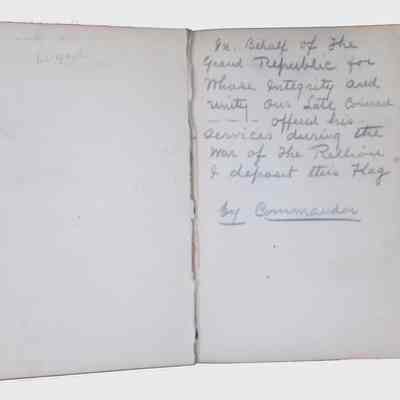 In Behalf of the
Grand Republic for
Whose Integrity and
unity Our Late Comrad
- - - - offered his
Services during the
War of The Rellion
I deposit this Flag
by Commander